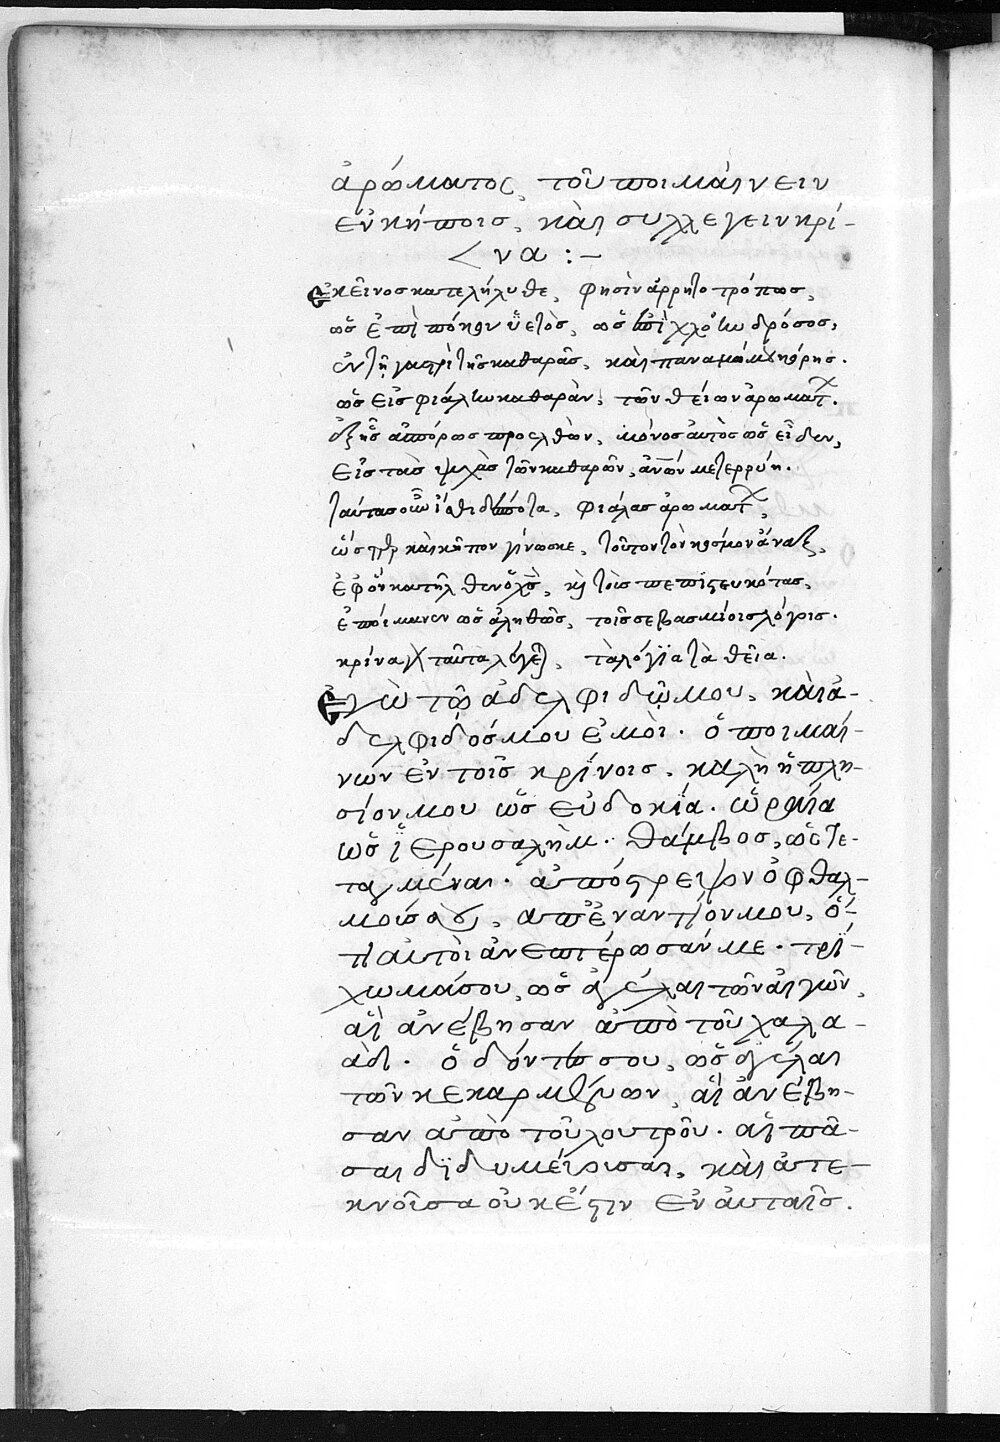 ἀρώματος, τοῦ ποιμαίνειν
ἐν κήποις, καὶ συλλέγειν κρί-
να :-
Ἐκεῖνος κατελήλυθε, φησὶν ἀρρήτῳ τρόπως,
ὡς ἐπὶ πόκον ὑετὸς, ὡς ἐπὶ χλόην δρόσος,
ἐν τῇ γαστρὶ τῆς καθαρᾶς, καὶ παναμώμου κόρης.
ὡς εἰς φιάλην καθαρὰν, τῶν θείων ἀρωμάτ.
ἐξ ἧς ἀπόρως προελθὼν, μόνος αὐτὸς ὡς εἶδεν,
εἰς τὰς ψυχὰς τῶν καθαρῶν, ἀνων μετερρύη.
ταύτας οὖν ἴσθι δέσποτα, φιάλας ἀρωμάτ,
ὥσπερ καὶ κῆπον γίνωσκε, τοῦτον τὸν κόσμον ἄναξ,
ἐφ' ὃν κατῆλθεν ὁ χς, καὶ τοῖς πεπιστευκότας,
ἐποίμανεν ὡς ἀληθῶς, τοῖς σεβασμίοις λόγοις.
κρίνα γὰρ ταῦτα λέγει, τὰ λόγϊα τὰ θεῖα.
Ἐγὼ τῷ ἀδελφιδῷ μου, καὶ ἀ-
δελφιδός μου ἐμοὶ. ὁ ποιμαί-
νων ἐν τοῖς κρίνοις. καλὴ ἡ πλη-
σίον μου ὡς εὐδοκία. ὡραία
ὡς ἱερουσαλὴμ. θάμβος, ὡς τε-
ταγμέναι. ἀπόστρεψον ὀφθαλ-
μούς σου, ἀπεναντίον μου, ὅ-
τι αὐτοὶ ἀνεπτέρωσάν με. τρί-
χωμά σου, ὡς ἀγέλαι τῶν αἰγῶν,
αἳ ἀνέβησαν ἀπὸ τοῦ γαλα-
ὰδ. ὀδόντες σου, ὡς ἀγέλαι
τῶν κεκαρμένων, αἳ ἀνέβη-
σαν ἀπὸ τοῦ λουτροῦ. αἱ πᾶ-
σαι διδυμεύουσαι, καὶ ἀτε-
κνοῦσα οὐκ ἔστιν ἐν αὐταῖς.